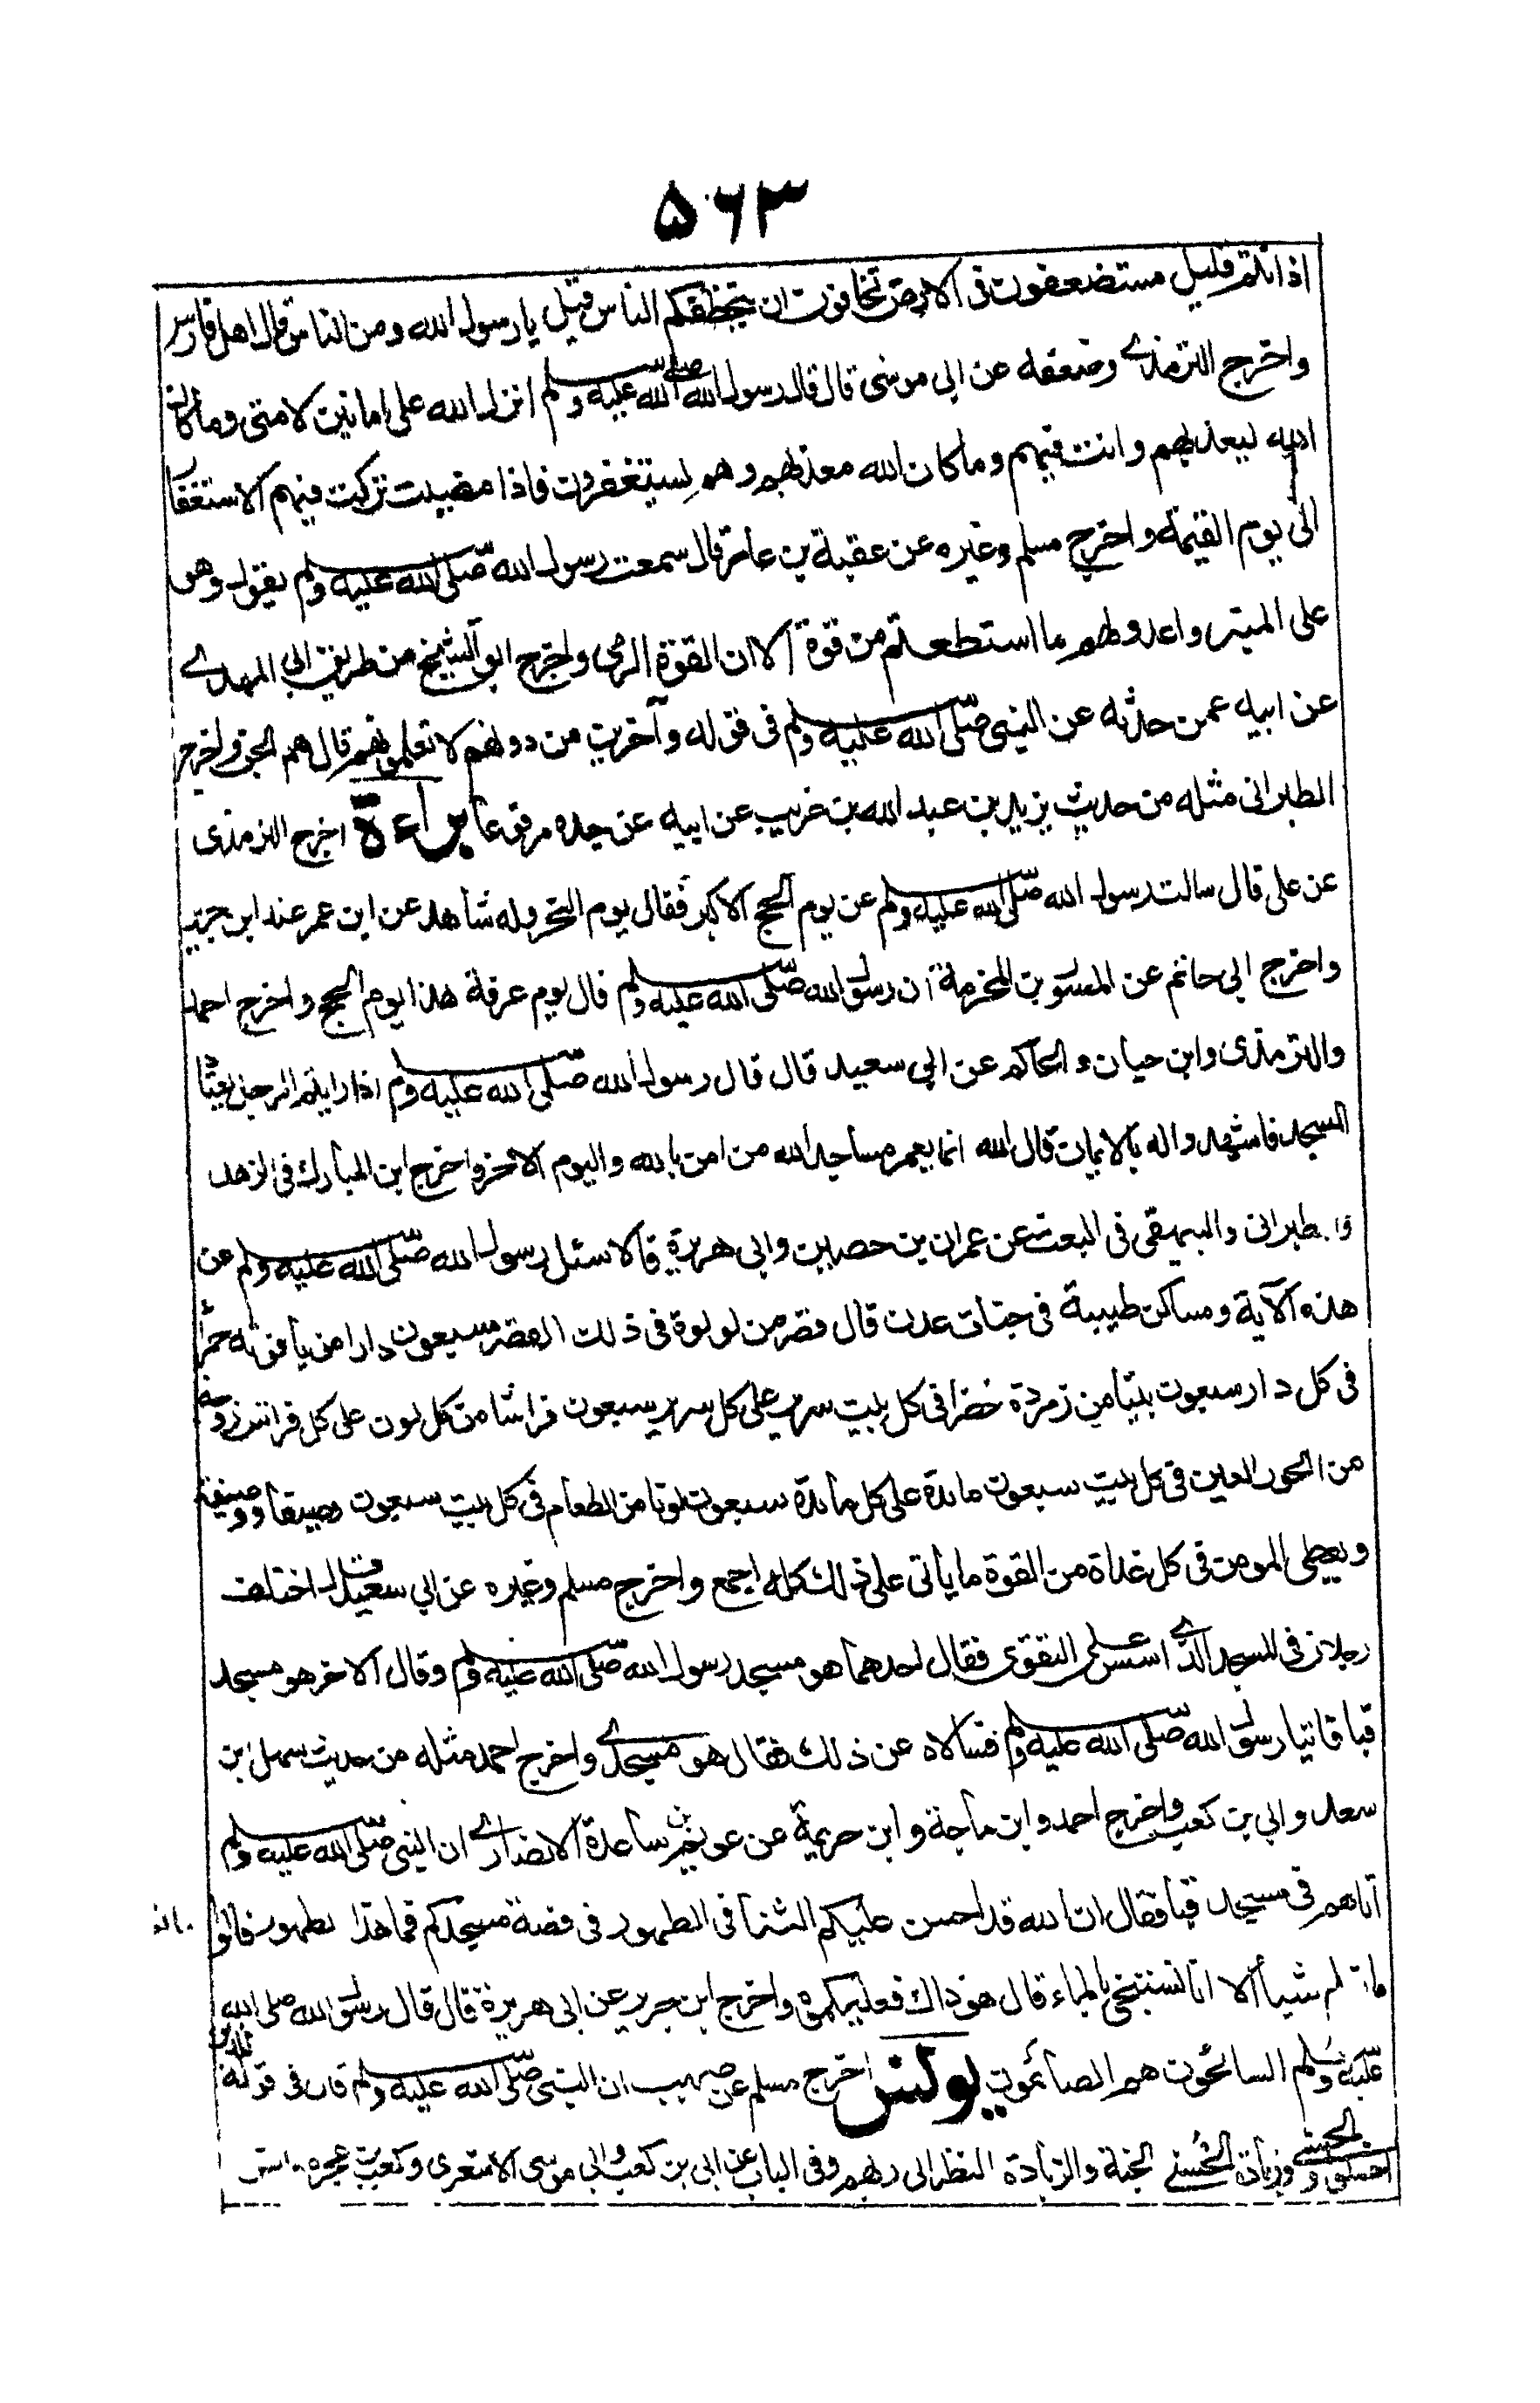 ۵۶۳
اذ انتم قليل مستضعفون فى الارض تخافون ان يتخطفكم الناس قيل يا رسول الله ومن الناس قال اهل فارس
واخرج الترمذى وضعفه عن ابى موسى قال قال رسول الله صلى الله عليه وسلم انزل الله على امانين لامتى وما كان
الله ليعذبهم وانت فيهم وما كان الله معذبهم وهم يستغفرون فاذا مضيت تركت فيهم الاستغفار
الى يوم القيمة واخرج مسلم وغيره عن عقبة بن عامر قال سمعت رسول الله صلى الله عليه وسلم يقول وهو
على المنبر واعدوا لهم ما استطعتم من قوة الا ان القوة الرمى واخرج ابو الشيخ من طريق ابى المهدى
عن ابيه عمن حدثه عن النبى صلى الله عليه وسلم فى قوله وآخرين من دونهم لا تعلمونهم قال هم الجن واخرج
الطبرانى مثله من حديث يزيد بن عبد الله بن غريب عن ابيه عن جده مرفوعا براءة اخرج الترمذى
عن على قال سالت رسول الله صلى الله عليه وسلم عن يوم الحج الاكبر فقال يوم النحر وله شاهد عن ابن عمر عند ابن جرير
واخرج ابى حاتم عن المسور بن المخرمة ان رسول الله صلى الله عليه وسلم قال يوم عرفة هذا يوم الحج واخرج احمد
والترمذى وابن حبان والحاكم عن ابى سعيد قال قال رسول الله صلى الله عليه وسلم اذا رايتم الرجل يعتاد
المسجد فاشهدوا له بالايمان قال الله انما يعمر مساجد الله من امن بالله واليوم الاخر واخرج ابن المبارك فى الزهد
والطبرانى والبيهقى فى البعث عن عمران بن حصين وابى هريرة قالا سئل رسول الله صلى الله عليه وسلم عن
هذه الآية ومساكن طيبة فى جنات عدن قال قصر من لولوة فى ذلك القصر سبعون دارا من ياقوتة حمرا
فى كل دار سبعون بيتا من زمردة خضرا فى كل بيت سرير على كل سرير سبعون فراشا من كل لون على كل فراش زوجة
من الحور العين فى كل بيت سبعون مائدة على كل مائدة سبعون لونا من الطعام فى كل بيت سبعون وصيفا ووصيفة
ويعطى المومن فى كل غداة من القوة ما يأتى على ذلك كله اجمع واخرج مسلم وغيره عن ابى سعيد قال اختلف
رجلان فى المسجد الذى اسس على التقوى فقال احدهما هو مسجد رسول الله صلى الله عليه وسلم وقال الاخر هو مسجد
قبا فاتيا رسول الله صلى الله عليه وسلم فسالاه عن ذلك فقال هو مسجدى واخرج احمد مثله من حديث سهل ابن
سعد وابى بن كعب واخرج احمد وابن ماجة وابن خزيمة عن عويم بن ساعدة الانصارى ان النبى صلى الله عليه وسلم
اتاهم فى مسجد قبا فقال ان الله قد احسن عليكم الثنا فى الطهور فى قصة مسجدكم فما هذا الطهور قالوا
شيأ الا انا نستنجى بالماء قال هو ذاك فعليكموه واخرج ابن جرير عن ابى هريرة قال قال رسول الله صلى الله
عليه وسلم السائحون هم الصائمون يونس اخرج مسلم عن صهيب ان النبى صلى الله عليه وسلم قال فى قوله للذين
احسنوا الحسنى وزيادة الحسنى الجنة والزيادة النظر الى ربهم وفى الباب عن ابى بن كعب وابى موسى الاشعرى وكعب بن عجرة